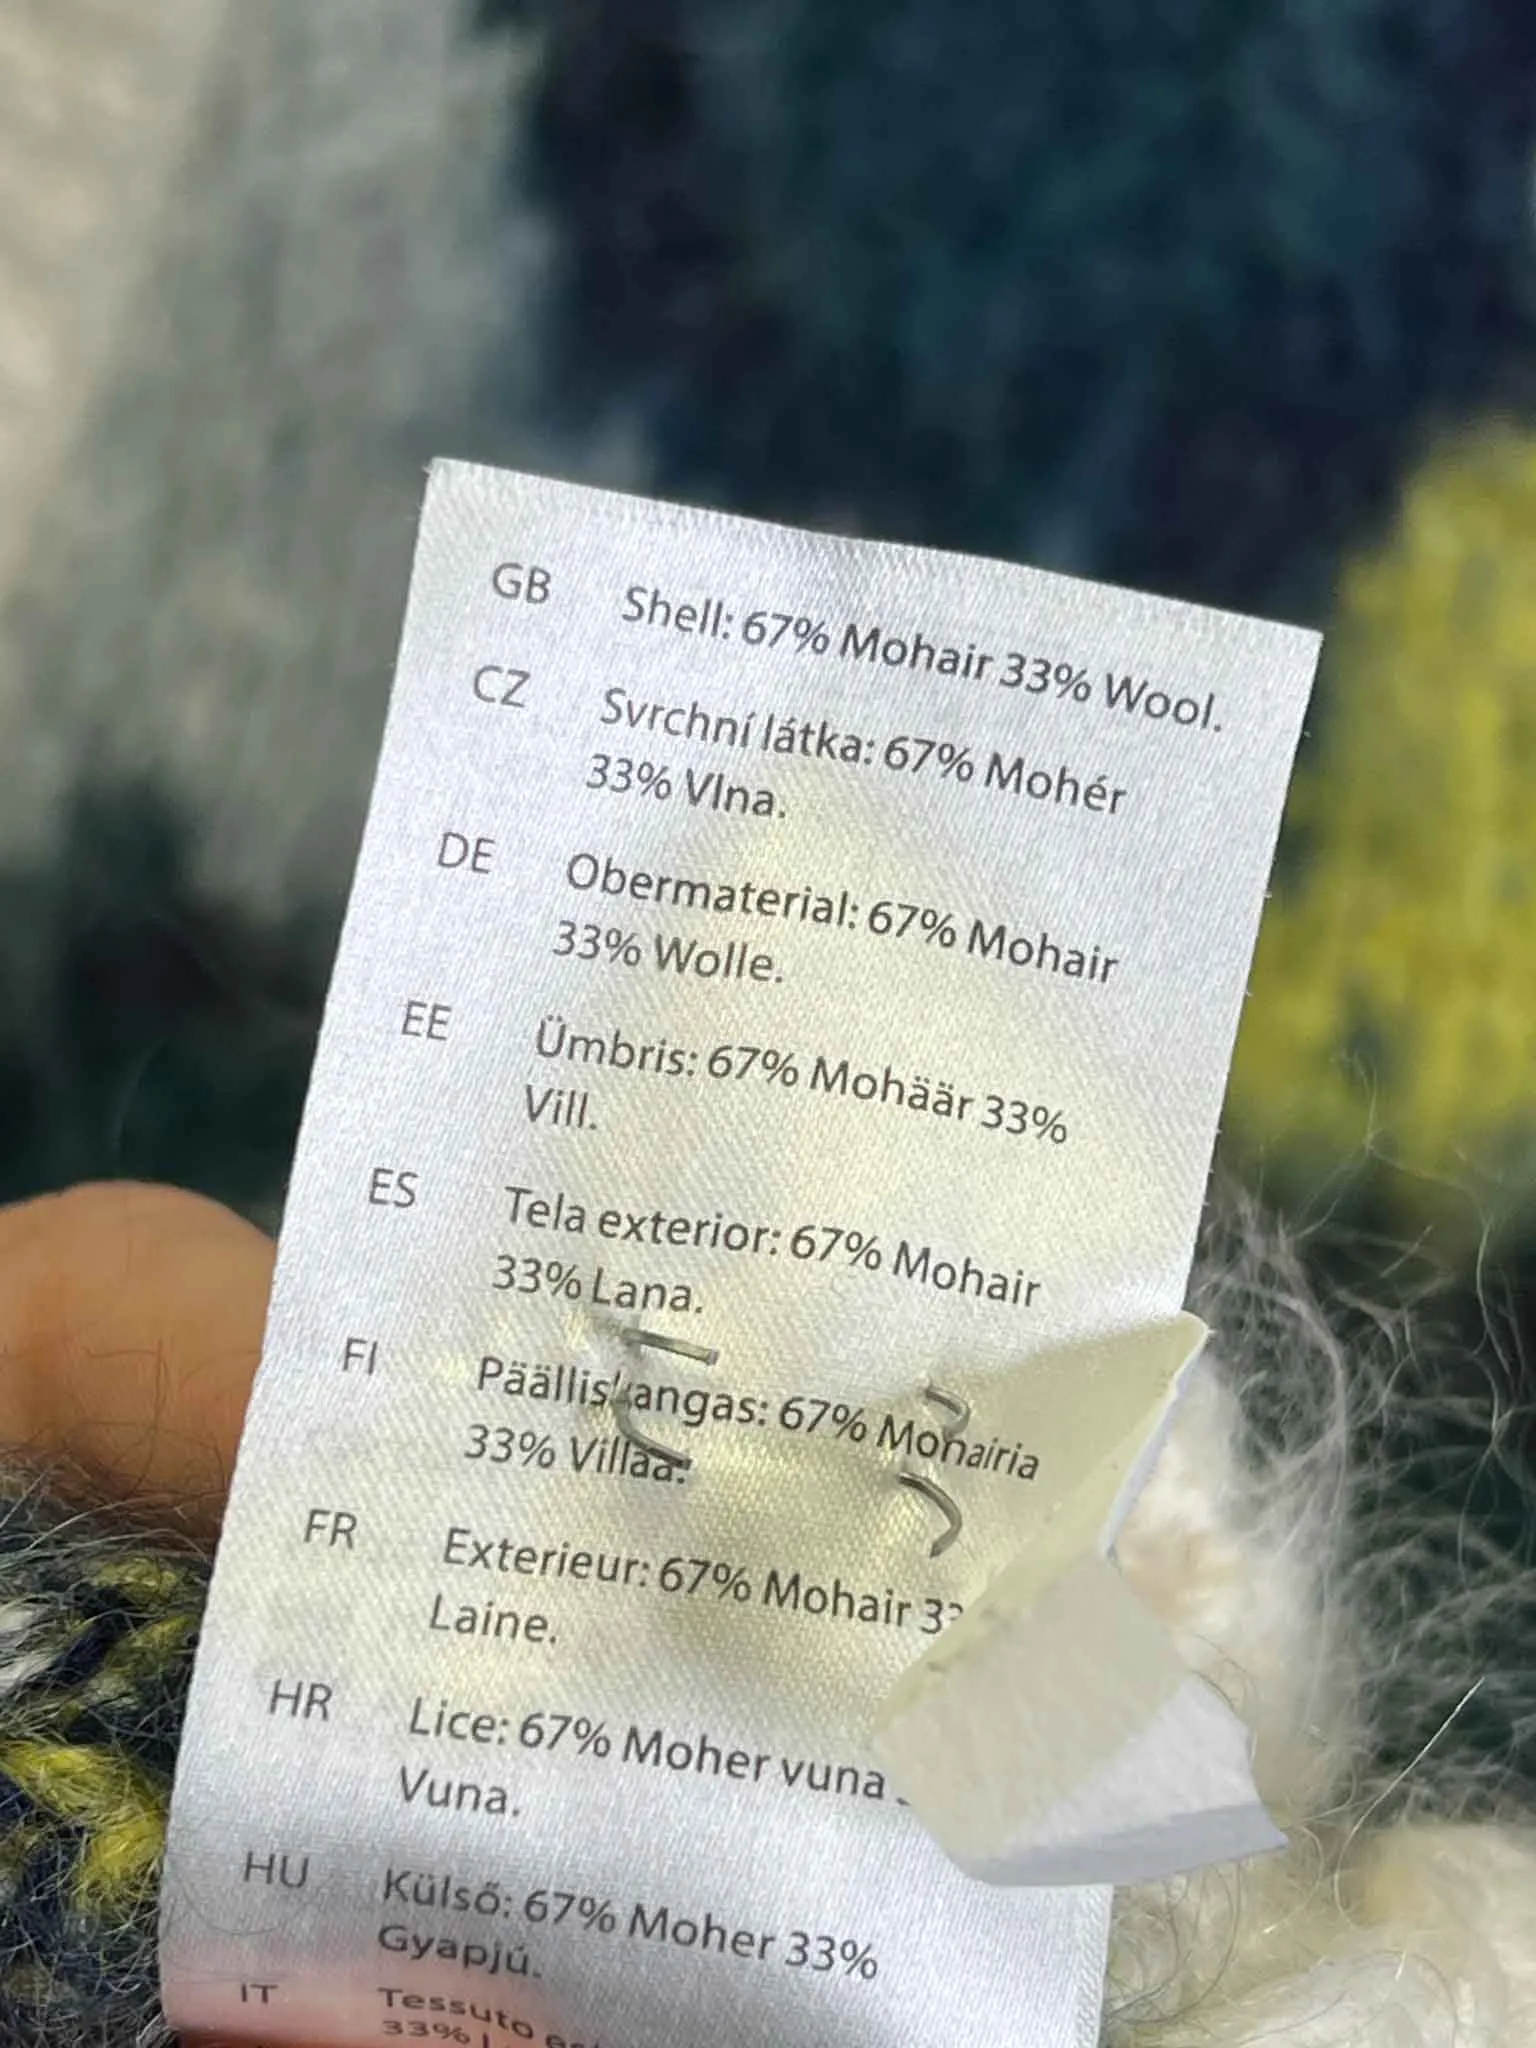 GB Shell: 67% Mohair 33% Wool.
CZ Svrchní látka: 67% Mohér
33% Vlna.
DE Obermaterial: 67% Mohair
33% Wolle.
EE Ümbris: 67% Mohäär 33%
Vill.
ES Tela exterior: 67% Mohair
33% Lana.
FI Päälliskangas: 67% Mohairia
33% Villaa.
FR Exterieur: 67% Mohair
Laine.
HR Lice: 67% Moher vuna
Vuna.
HU Külső: 67% Moher 33%
Gyapjú.
IT Tessuto
33%